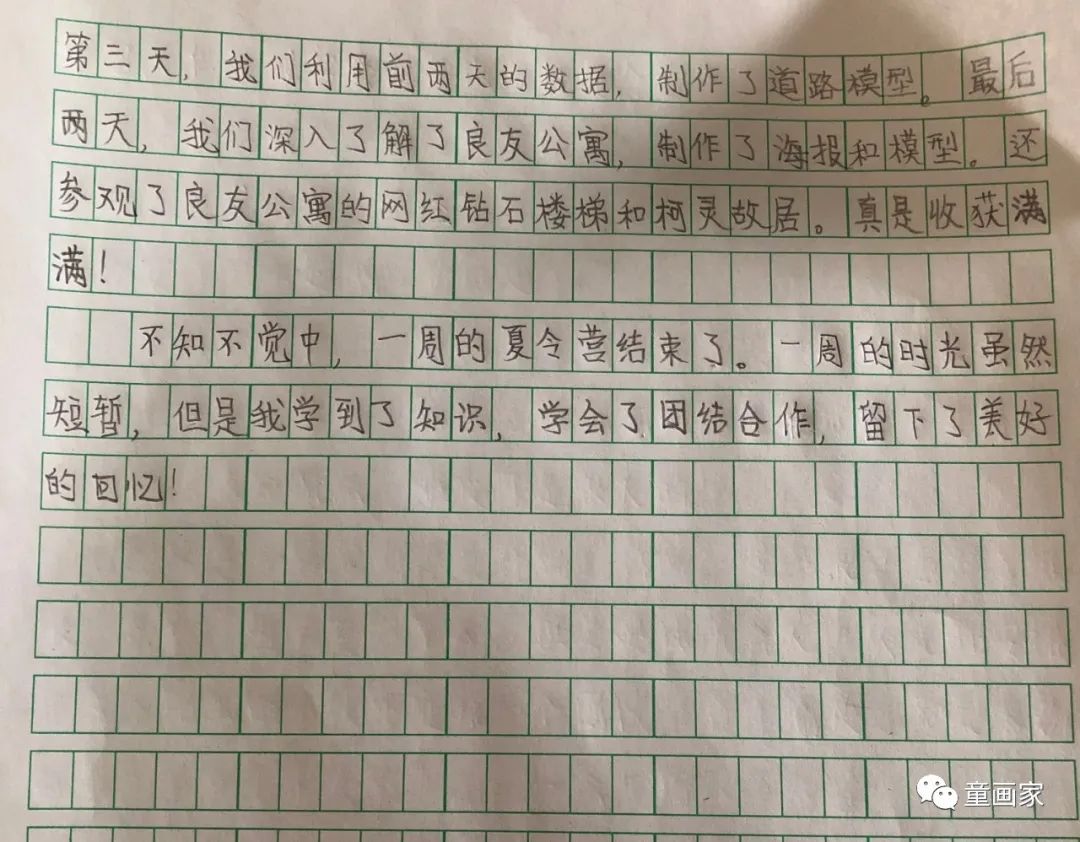 第三天，我们利用前两天的数据，制作了道路模型。最后
两天，我们深入了解了良友公寓，制作了海报和模型。还
参观了良友公寓的网红钻石楼梯和柯灵故居。真是收获满
满！
不知不觉中，一周的夏令营结束了。一周的时光虽然
短暂，但是我学到了知识，学会了团结合作，留下了美好
的回忆！
童画家